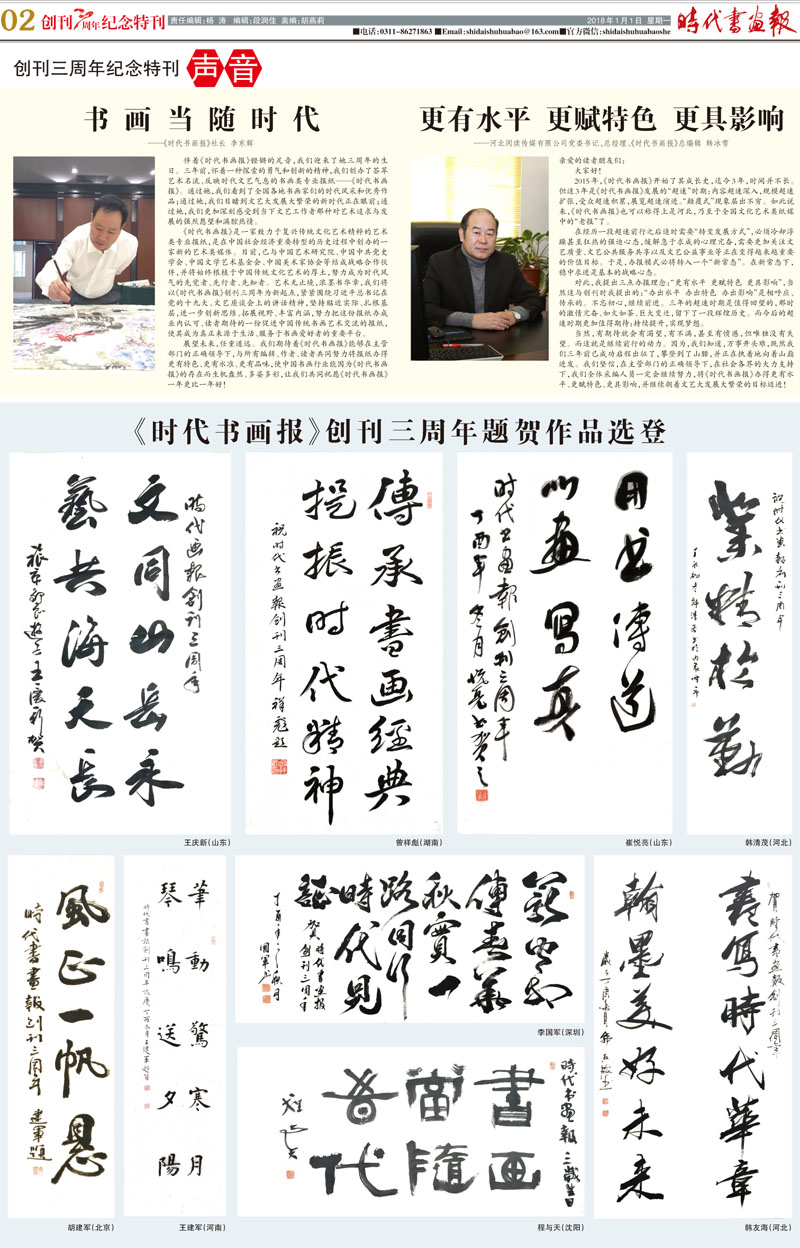 02 创刊三周年纪念特刊
责任编辑:杨 涛 编辑:段润佳 美编:胡燕莉
2018年1月1日 星期一
■电话:0311-86271863 ■Email:shidaishuhuabao@163.com■官方微信:shidaishuhuabaoshe
时代书画报
创刊三周年纪念特刊 声音
书画当随时代
——《时代书画报》社长 李东辉
伴着《时代书画报》铿锵的足音,我们迎来了她三周年的生
日。三年前,怀着一种探索的勇气和创新的精神,我们创办了荟萃
艺术名流、反映时代文艺气息的书画类专业报纸——《时代书画
报》。通过她,我们看到了全国各地书画家们的时代风采和优秀作
品;通过她,我们目睹到文艺大发展大繁荣的新时代正在眼前;通
过她,我们更加深刻感受到当下文艺工作者那种对艺术追求与发
展的强烈愿望和满腔热情。
《时代书画报》是一家致力于复兴传统文化艺术精粹的艺术
类专业报纸,是在中国社会经济重要转型的历史过程中创办的一
家新的艺术类媒体。目前,已与中国艺术研究院、中国中共党史
学会、中国文学艺术基金会、中国美术家协会等结成战略合作伙
伴,并将始终根植于中国传统文化艺术的厚土,努力成为时代风
气的先觉者、先行者、先知者。艺术无止境,浓墨书华章,我们将
以《时代书画报》创刊三周年为新起点,紧紧围绕习近平总书记在
党的十九大、文艺座谈会上的讲话精神,坚持贴近实际、扎根基
层,进一步创新思维、拓展视野、丰富内涵,努力把这份报纸办成
业内认可、读者期待的一份促进中国传统书画艺术交流的报纸,
使其成为真正来源于生活、服务于书画爱好者的重要平台。
展望未来,任重道远。我们期待着《时代书画报》能够在主管
部门的正确领导下,与所有编辑、作者、读者共同努力将报纸办得
更有特色、更有水准、更有品味,使中国书画行业能因为《时代书画
报》的存在而生机盎然、多姿多彩,让我们共同祝愿《时代书画报》
一年更比一年好!
更有水平 更赋特色 更具影响
——河北阅读传媒有限公司党委书记、总经理、《时代书画报》总编辑 韩冰雪
亲爱的读者朋友们:
大家好!
2015年,《时代书画报》开始了其成长史,迄今3年,时间并不长。
但这3年是《时代书画报》发展的“超速”时期;内容超速深入,规模超速
扩张,受众超速积累,展览超速演进。“颠覆式”现象层出不穷。如此说
来,《时代书画报》也可以称得上是河北,乃至于全国文化艺术类纸媒
中的“老报”了。
在经历一段超速前行之后适时需要“转变发展方式”,必须冷却浮
躁甚至狂热的强进心态,缓解急于求成的心理冗奋,需要更加关注文
艺质量、文艺公共服务共享以及文艺公益事业等正在变得越来越重要
的价值目标。于是,办报模式必将转入一个“新常态”。在新常态下,
稳中求进是基本的战略心态。
对此,我提出三点办报理念:“更有水平 更赋特色 更具影响”,当
然这与创刊时我提出的:“办出水平 办出特色 办出影响”是相呼应、
传承的。不忘初心,继续前进。三年的超速时期是值得回望的,那时
的激情充奋、如火如荼、巨大变迁,留下了一段辉煌历史。而今后的超
速时期更加值得期待:持续提升,实现梦想。
当然,有期待就会有渴望,有不满,甚至有愤懑,但唯独没有失
望。而这就是继续前行的动力。因为,我们知道,万事开头难,既然我
们三年前已成功启程出征了,攀登到了山腰,并正在执着地向着山巅
进发。我们坚信,在主管部门的正确领导下,在社会各界的大力支持
下,我们全体采编人员一定会继续努力,将《时代书画报》办得更有水
平、更赋特色、更具影响,并继续朝着文艺大发展大繁荣的目标迈进!
《时代书画报》创刊三周年题贺作品选登
時代画報創刊三周年
文同山岳永
藝共海天長
王庆新(山东)
傳承書画經典
提振时代精神
祝时代书画報创刊三周年 祥彪題
曾祥彪(湖南)
用书傳道
以畫寫真
时代书畫報創刊三周年
丁酉年冬月悦亮书贺之
崔悦亮(山东)
祝时代书画报创刊三周年
業精於勤
韩清茂(河北)
風正一帆悬
時代書畫報創刊三周年 建軍題
胡建军(北京)
筆動驚寒月
琴鳴送夕陽
王建军(河南)
傳春華
秋實一
路同行
時代見
證
賀時代書画报
創刊三周年
丁酉年之秋月
國軍书
李国军(深圳)
時代书画報三歲生日
書画
當隨
時代
程与天(沈阳)
賀時代書画报創刊三周年
書寫時代華章
翰墨美好未来
韩友海(河北)